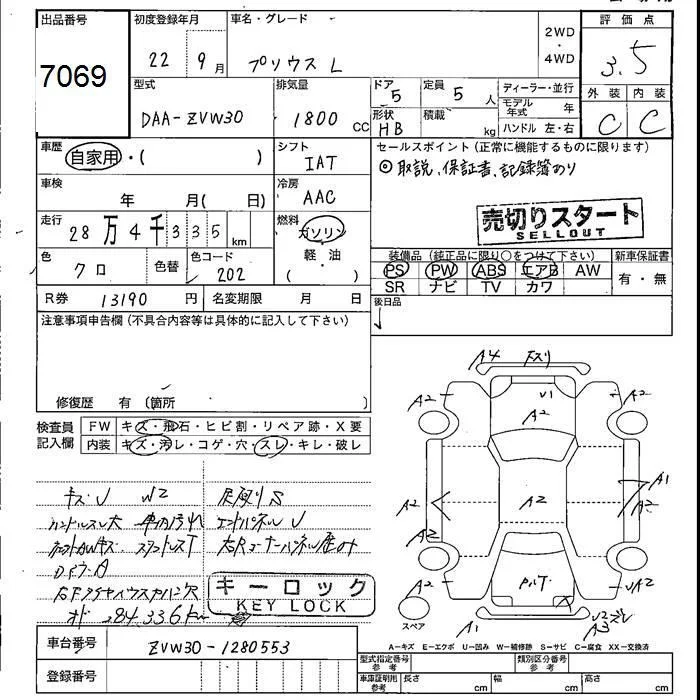 出品番号
7069
初度登録年月
22 年 9 月
車名・グレード
プリウス L
2WD
・
4WD
評価点
3.5
型式
DAA-ZVW30
排気量
1800 cc
ドア
5
定員
5 人
形状
HB
積載
kg
ディーラー・並行
モデル年式 年
ハンドル 左・右
外装 内装
C C
車歴
自家用・( )
シフト
IAT
セールスポイント(正常に機能するものに限ります)
◎取説、保証書、記録簿あり
車検
年 月( 日)
冷房
AAC
走行
28万4千335 km
燃料
ガソリン
軽・油
( )
売切りスタート
SELLOUT
色
クロ
色替
色コード
202
装備品(純正品に限り○をつけて下さい)
PS PW ABS エアB AW
SR ナビ TV カワ
新車保証書
有・無
R券 13190 円
名変期限 月 日
後日品
注意事項申告欄(不具合内容等は具体的に記入して下さい)
修復歴 有(箇所
検査員記入欄
FW キズ・飛石・ヒビ割・リペア跡・X要
内装 キズ・汚レ・コゲ・穴・スレ・キレ・破レ
キズ・U W2
ハンドルスレ大
Dドア・A
キーロック
KEY LOCK
284.336km
車台番号
ZVW30-1280553
登録番号
A4
A2 U1 A2
A2
A2 A2 A1
A2
A2
A2
スペア
A1
A3
A-キズ E-エクボ U-凹み W-補修跡 S-サビ C-腐食 XX-交換済
型式指定番号 参考
類別区分番号 参考
車庫証明用 参考
長さ cm
幅 cm
高さ cm